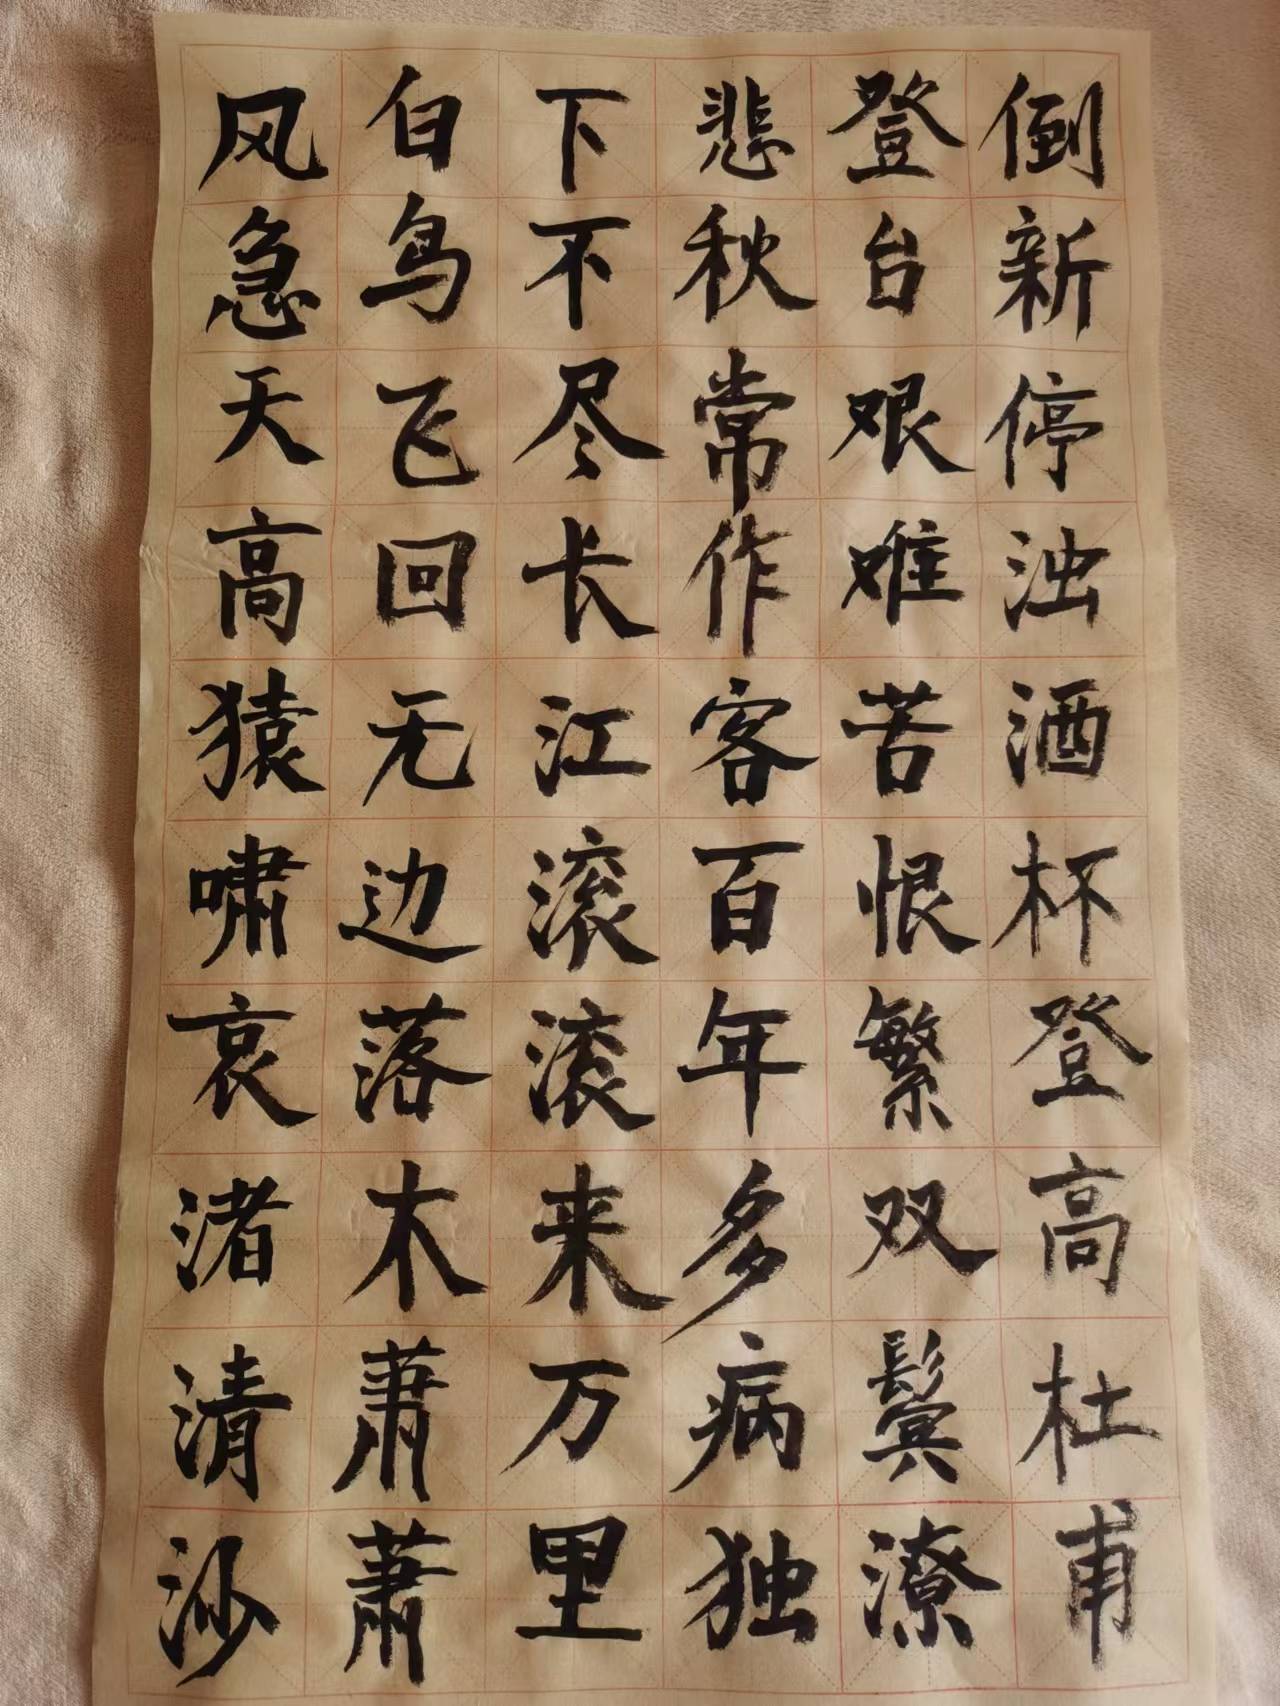 风急天高猿啸哀渚清沙
白鸟飞回无边落木萧萧
下不尽长江滚滚来万里
悲秋常作客百年多病独
登台艰难苦恨繁双鬓潦
倒新停浊酒杯登高杜甫